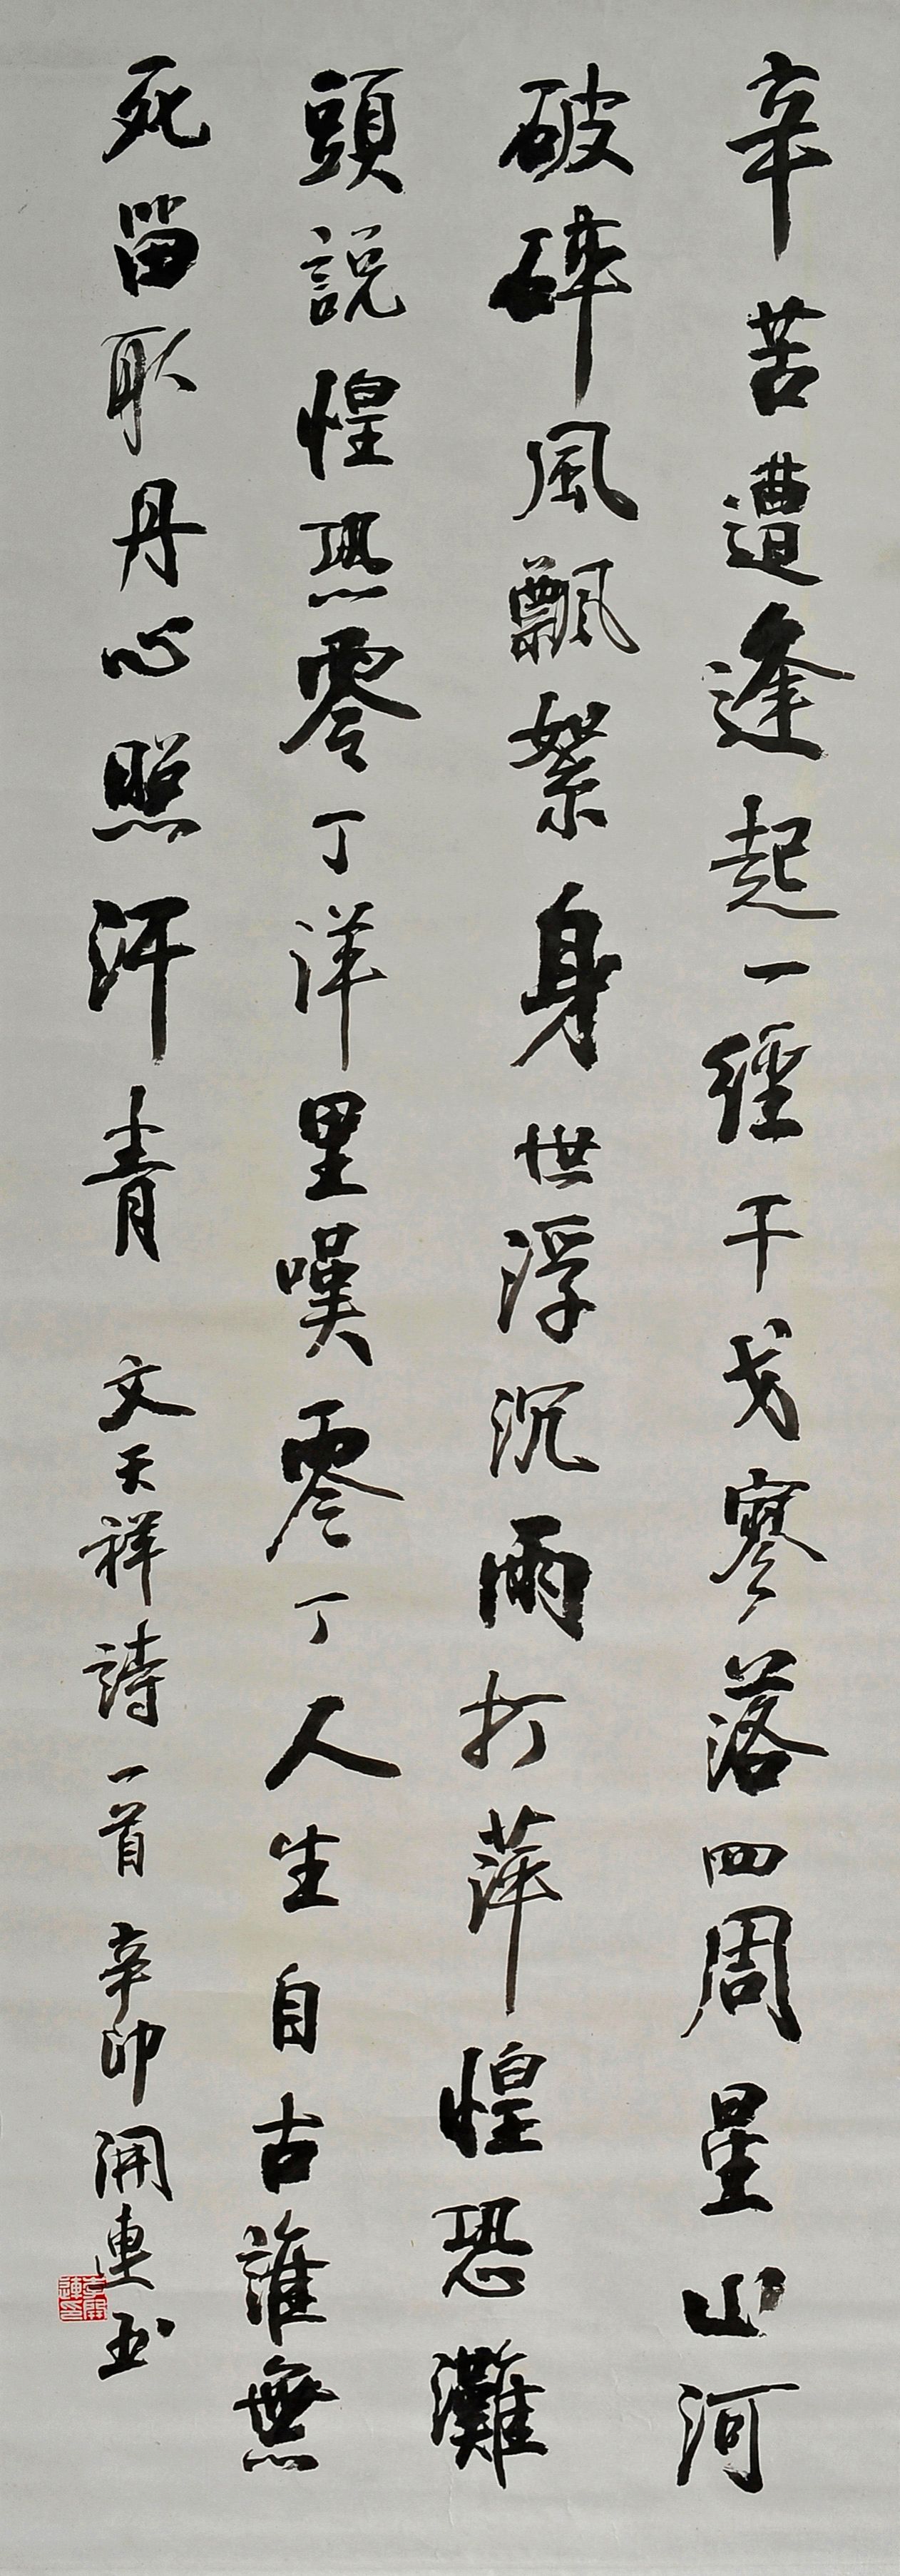 辛苦遭逢起一經干戈寥落四周星山河
破碎風飄絮身世浮沉雨打萍惶恐灘
頭說惶恐零丁洋里嘆零丁人生自古誰無
死留取丹心照汗青 文天祥詩一首 辛卯 開連书